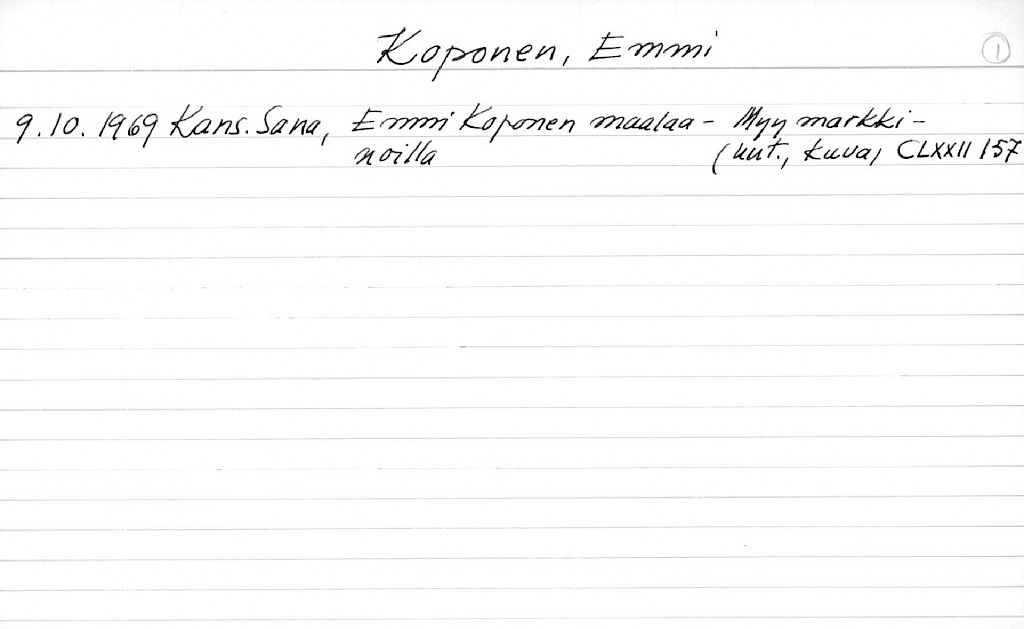 Koponen, Emmi 1
9.10.1969 Kans. Sana, Emmi Koponen maalaa - Myy markki-
noilla (uut., kuva) CLXXII 157